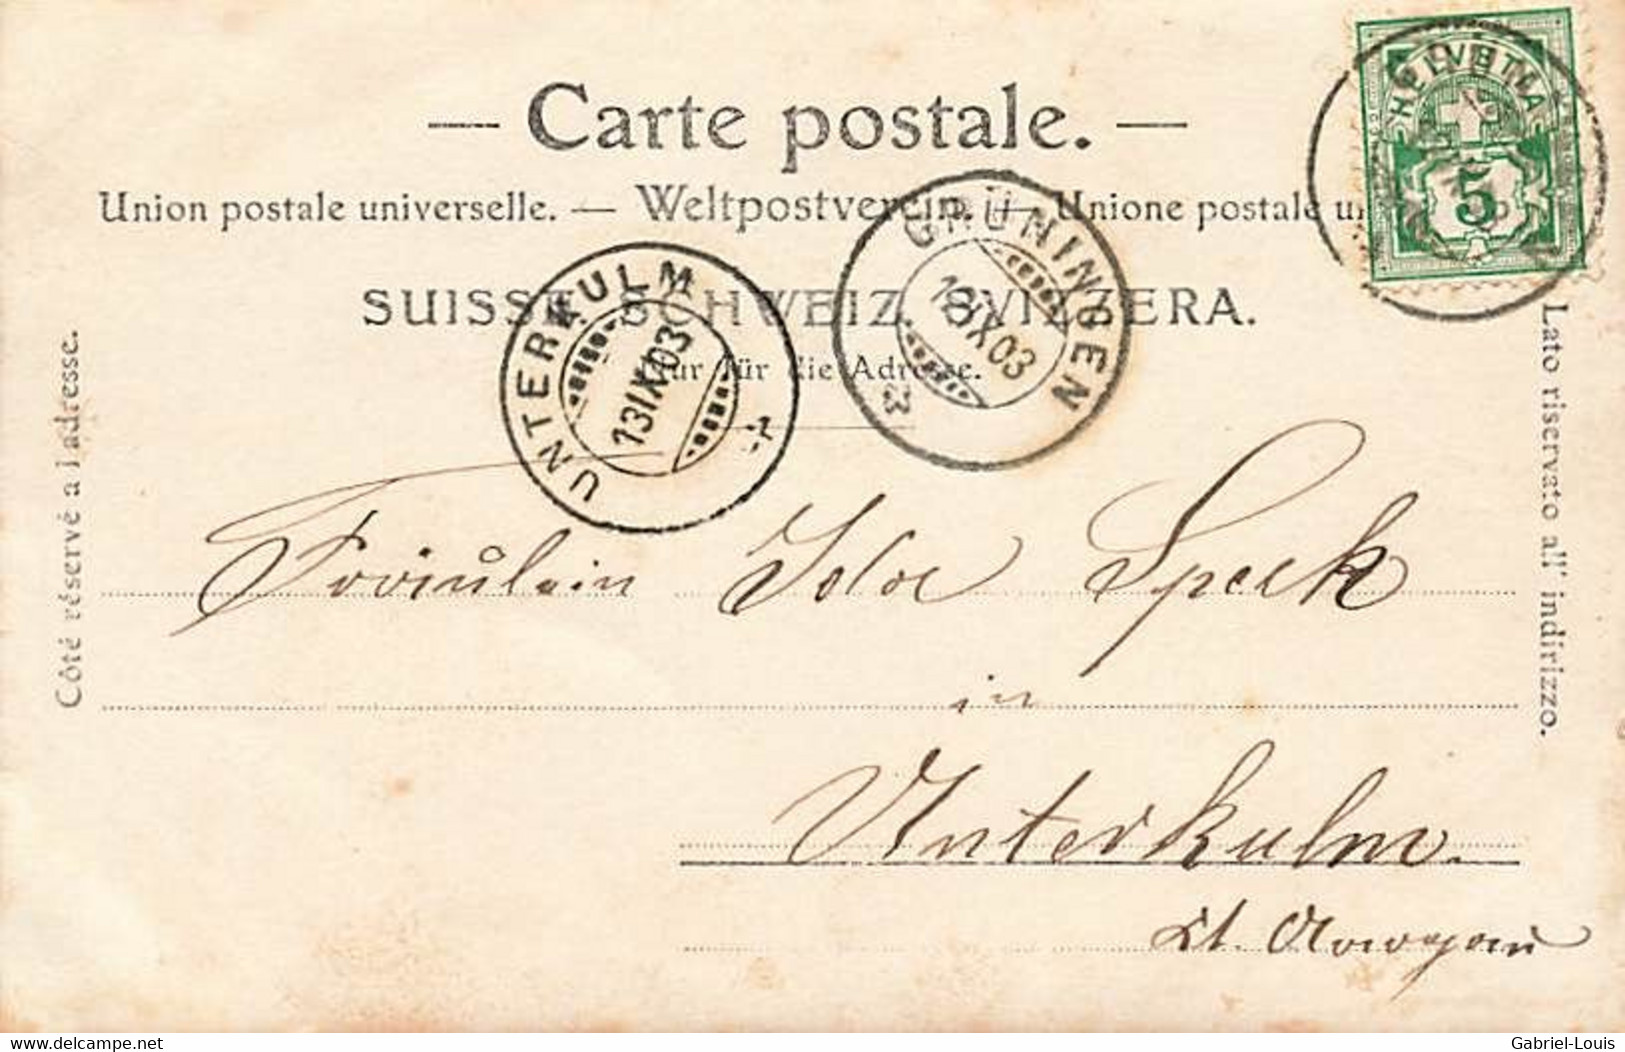 — Carte postale. —
Union postale universelle. — Weltpostverein. — Unione postale u
SUISSE. SCHWEIZ. SVIZZERA.
Nur für die Adresse.
Côté réservé à l'adresse.
Lato riservato all' indirizzo.
HELVETIA
5
UNTERKULM
13 IX 03
GRÜNINGEN
13 IX 03
Fräulein Ida Speck
in
Unterkulm.
Kt. Aargau
delcampe.net
Gabriel-Louis